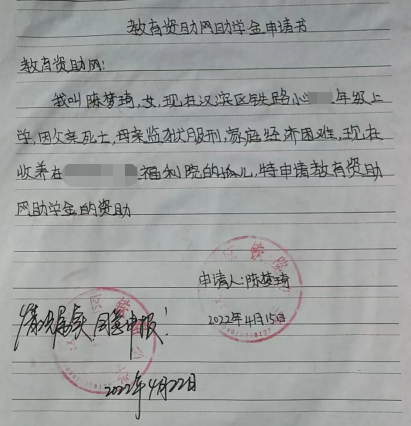 教育资助网助学金申请书
教育资助网:
我叫陈梦琦,女,现在汉滨区铁路小 年级上
学,因父亲死亡,母亲监狱服刑,家庭经济困难,现在
收养在 福利院的孤儿,特申请教育资助
网助学金的资助
申请人:陈梦琦
2022年4月15日
情况属实 同意申报!
2022年4月22日